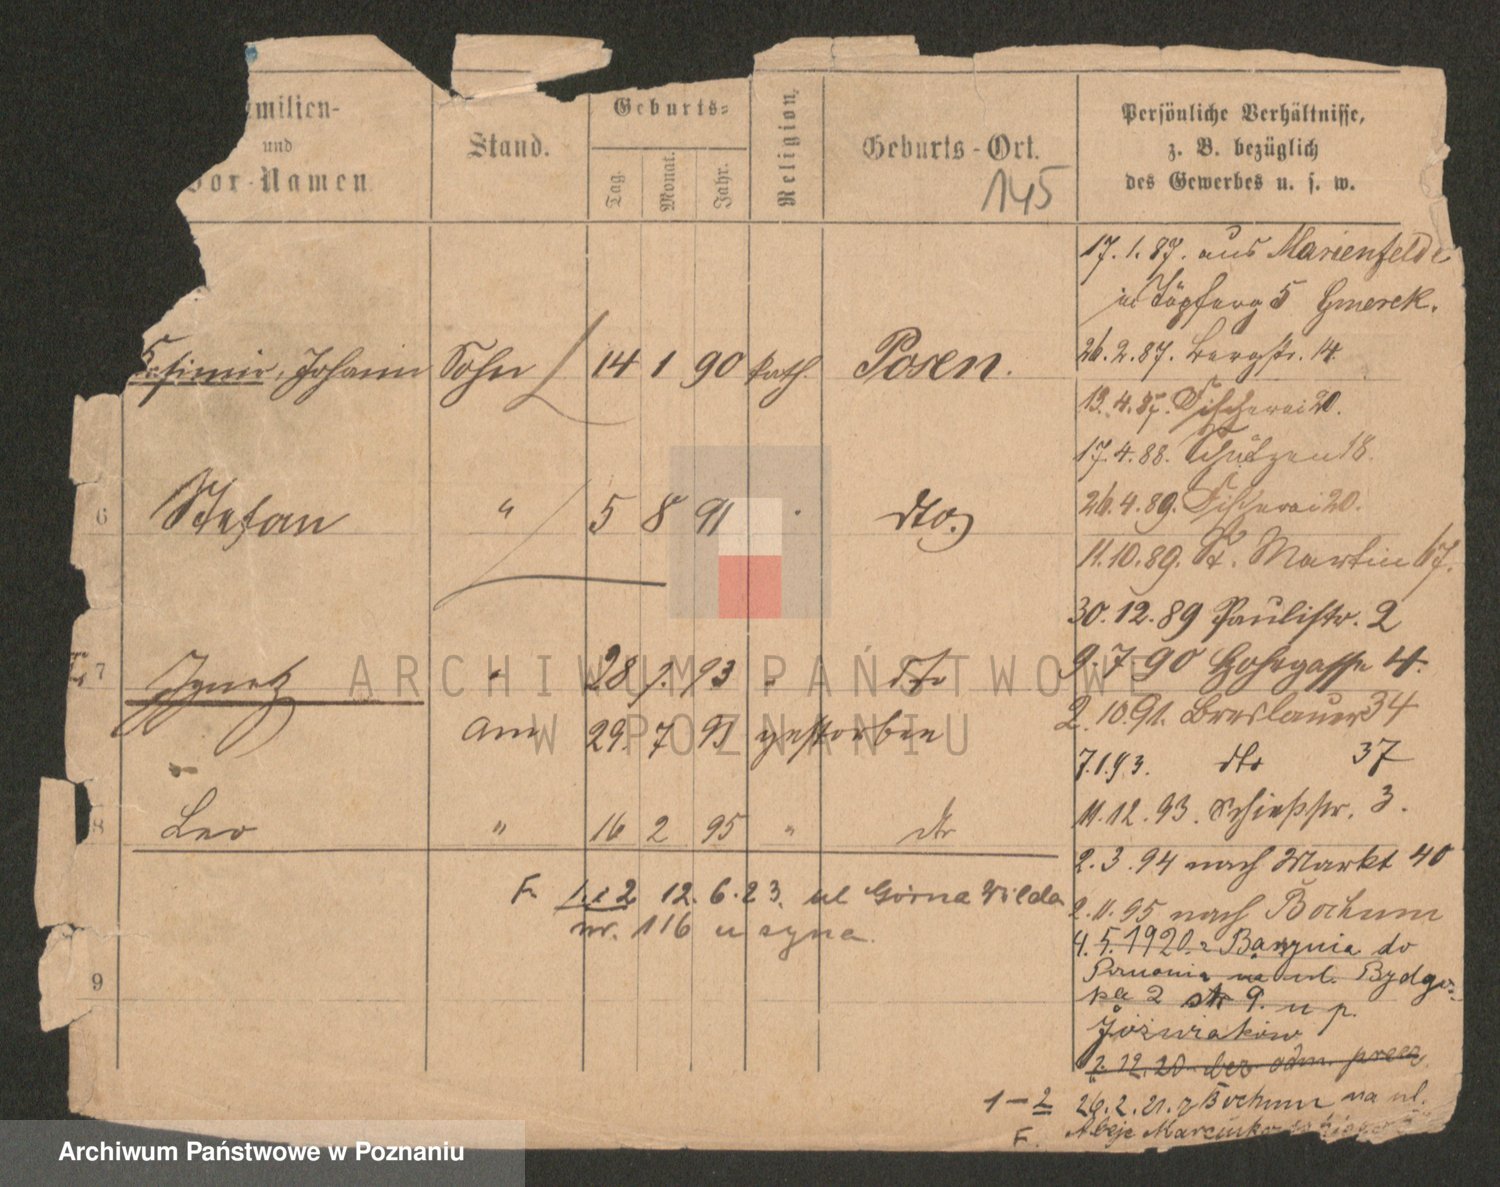 milien-
und
Vor-Namen
Stand.
Geburts-
Tag.
Monat.
Jahr.
Religion.
Geburts-Ort.
145
Persönliche Verhältnisse,
z. B. bezüglich
des Gewerbes u. s. w.
17.1.87. aus Marienfelde
in 5 Gmerek.
26.2.87. Bergstr. 14.
Kasimir, Johann Sohn 14 1 90 kath. Posen.
13.4.87. Fischerei 20.
17.4.88. Schützen 18.
6 Stefan " 5 8 91 dto.
26.4.89. Fischerei 20.
11.10.89. St. Martin 67.
30.12.89 Paulistr. 2
7 Ignatz " 28 93 " dto
9.7.90 4.
am 29 7 93 gestorben
2.10.91. Breslauer 34
7.1.93. dto 37
8 Leo " 16 2 95 " dto
11.12.93. Schießstr. 3.
2.3.94 nach Markt 40
F. 1.i 2 12.6.23. ul Górna Wilda
nr. 116 u syna.
2.11.95 nach Bochum
4.5.1920 z do
Poznania na ul. Bydgo-
2 9. u p.
Jóźwiaków
9
2.12.20 bez adm.
1-2 26.2.21. z Bochum na ul.
F. Marcinko
ARCHIWUM PAŃSTWOWE
W POZNANIU
Archiwum Państwowe w Poznaniu